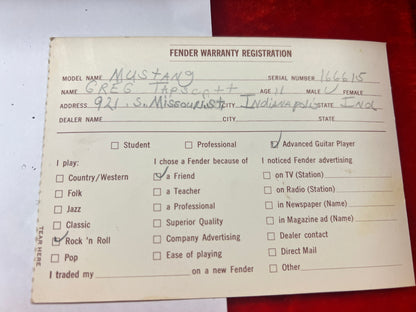 FENDER WARRANTY REGISTRATION
MODEL NAME MUSTANG SERIAL NUMBER 166615
NAME GREG TAPSCOTT AGE 11 MALE ✓ FEMALE
ADDRESS 921. S. Missouri St CITY Indianapolis STATE Ind
DEALER NAME CITY STATE
☐ Student ☐ Professional ☑ Advanced Guitar Player
I play: I chose a Fender because of I noticed Fender advertising
☐ Country/Western ☑ a Friend ☐ on TV (Station)
☐ Folk ☐ a Teacher ☐ on Radio (Station)
☐ Jazz ☐ a Professional ☐ in Newspaper (Name)
☐ Classic ☐ Superior Quality ☐ in Magazine ad (Name)
☑ Rock 'n Roll ☐ Company Advertising ☐ Dealer contact
☐ Pop ☐ Ease of playing ☐ Direct Mail
I traded my on a new Fender ☐ Other
TEAR HERE